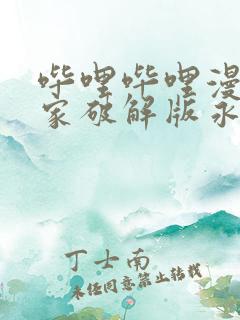 哔哩哔哩漫
家破解版永
丁士南
未经同意禁止转载